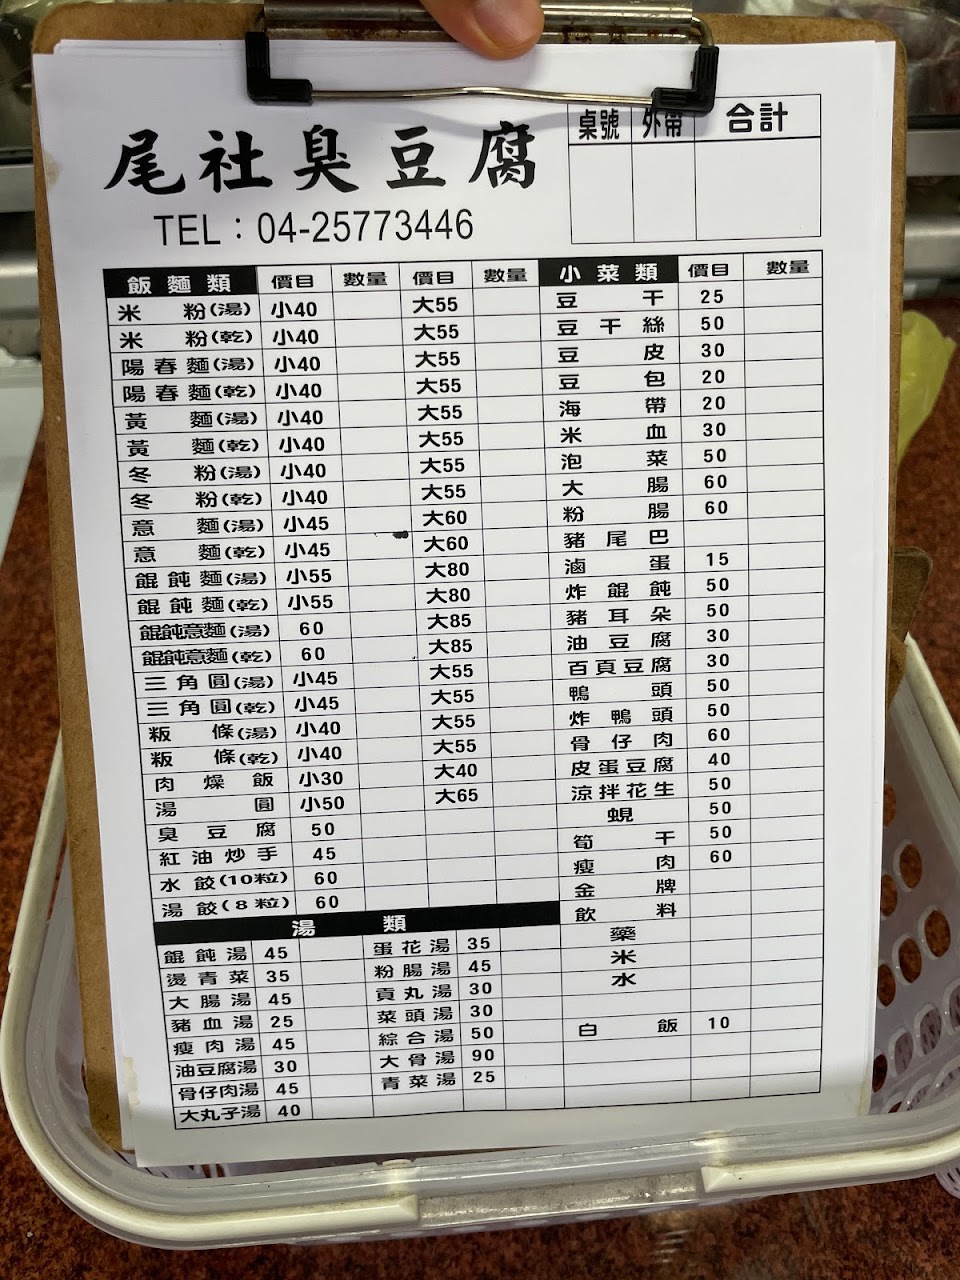 桌號 外帶 合計
尾社臭豆腐
TEL：04-25773446
飯麵類 價目 數量 價目 數量 小菜類 價目 數量
米粉(湯) 小40 大55 豆干 25
米粉(乾) 小40 大55 豆干絲 50
陽春麵(湯) 小40 大55 豆皮 30
陽春麵(乾) 小40 大55 豆包 20
黃麵(湯) 小40 大55 海帶 20
黃麵(乾) 小40 大55 米血 30
冬粉(湯) 小40 大55 泡菜 50
冬粉(乾) 小40 大55 大腸 60
意麵(湯) 小45 大60 粉腸 60
意麵(乾) 小45 大60 豬尾巴
餛飩麵(湯) 小55 大80 滷蛋 15
餛飩麵(乾) 小55 大80 炸餛飩 50
餛飩意麵(湯) 60 大85 豬耳朵 50
餛飩意麵(乾) 60 大85 油豆腐 30
三角圓(湯) 小45 大55 百頁豆腐 30
三角圓(乾) 小45 大55 鴨頭 50
粄條(湯) 小40 大55 炸鴨頭 50
粄條(乾) 小40 大55 骨仔肉 60
肉燥飯 小30 大40 皮蛋豆腐 40
湯圓 小50 大65 涼拌花生 50
臭豆腐 50 蜆 50
紅油炒手 45 筍干 50
水餃(10粒) 60 瘦肉 60
湯餃(8粒) 60 金牌
湯類 飲料
餛飩湯 45 蛋花湯 35 藥
燙青菜 35 粉腸湯 45 米
大腸湯 45 貢丸湯 30 水
豬血湯 25 菜頭湯 30
瘦肉湯 45 綜合湯 50 白飯 10
油豆腐湯 30 大骨湯 90
骨仔肉湯 45 青菜湯 25
大丸子湯 40